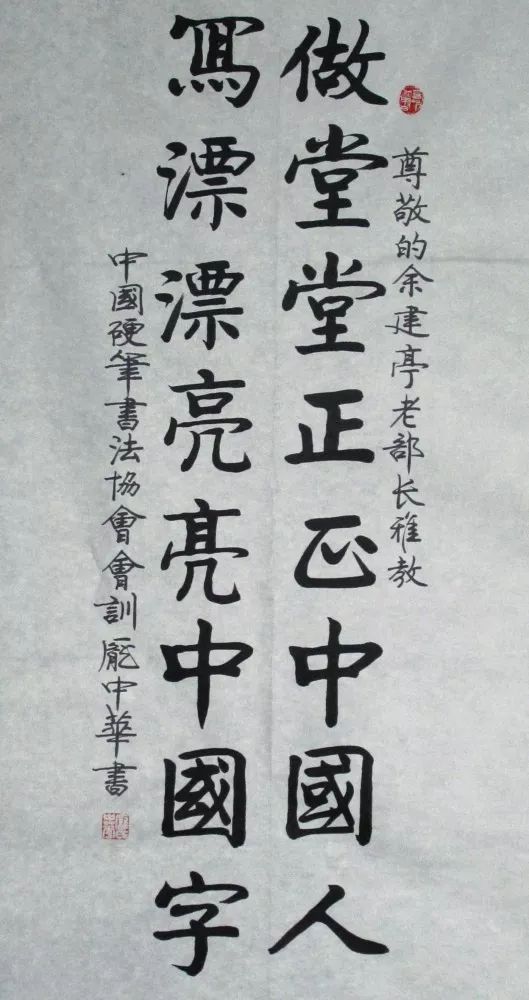 尊敬的余建亭老部长雅教
做堂堂正正中國人
寫漂漂亮亮中國字
中國硬筆書法協會會訓龐中華書